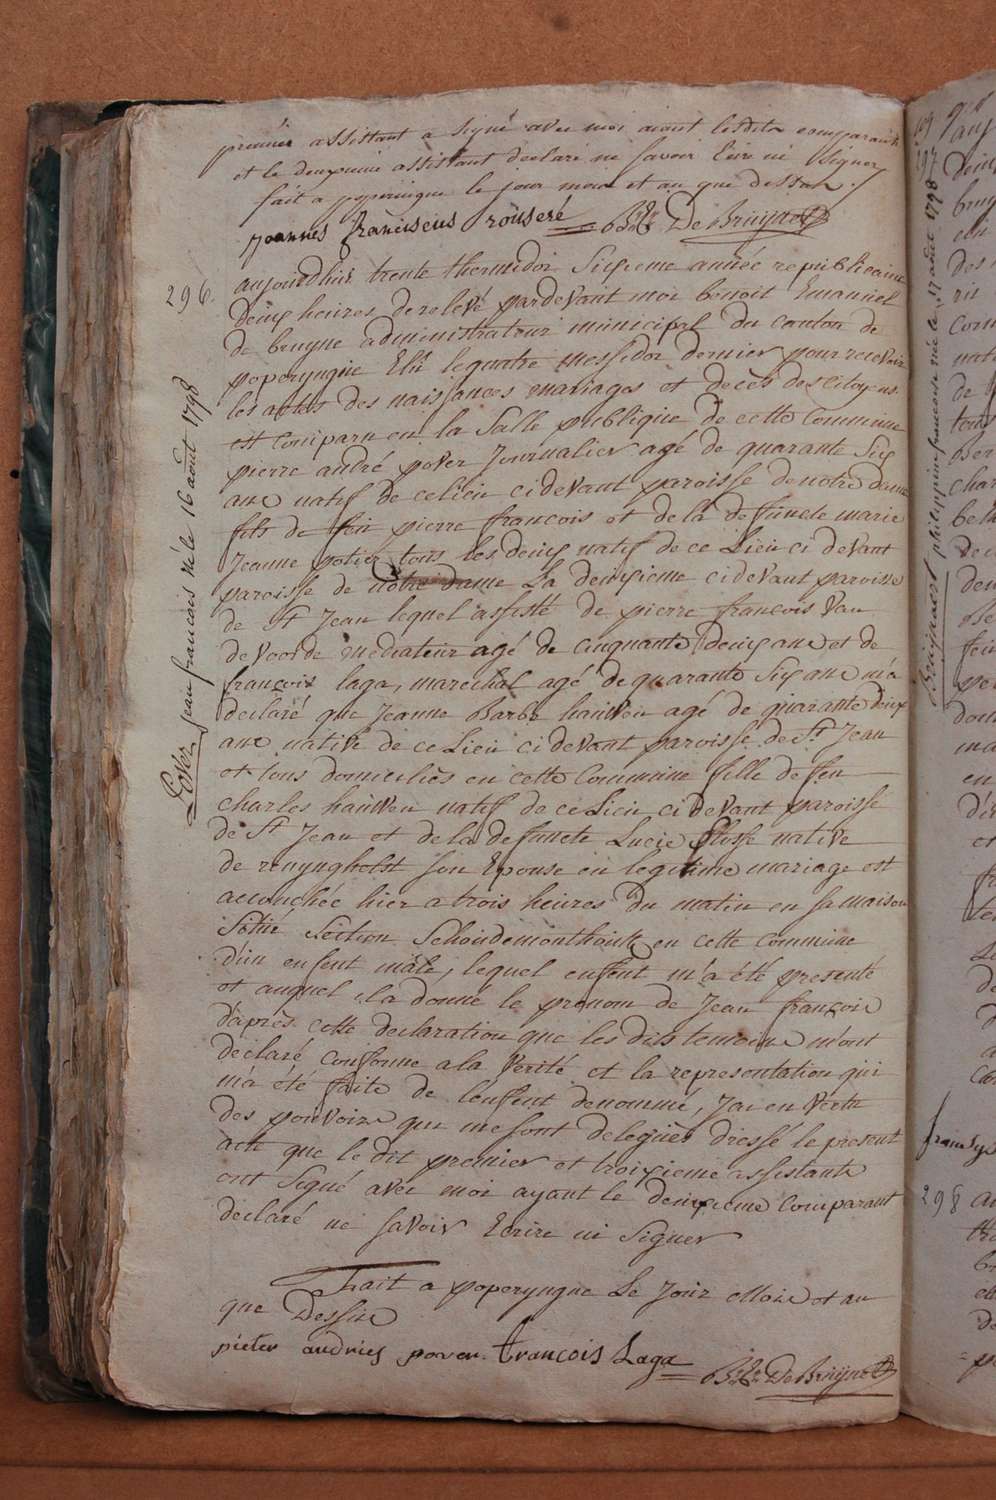 premier assistant a signé avec moi aiant lesdits comparants
et le deuxieme assistant declaré ne savoir Ecrire ni signer
fait a poperingue le jour mois et an que dessus
joannes franciscus rouseré B:E: De Bruyne
296.
aujourdhui trente thermidor Sixieme année republicaine
deux heures de relevé pardevant moi benoit Emanuel
de bruyne administrateur municipal du canton de
poperyngue Elu lequatre messidor dernier pour recevoir
les actes des naissances mariages et decès des citoyens
est comparu en la Salle publique de cette Commune
pierre andré pover Journalier agé de quarante Six
ans natif de celieu cidevant paroisse de notre dame
fils de feu pierre francois et de la defuncte marie
Jeanne potier tous les deux natif de ce Lieu ci devant
paroisse de notre dame La deuxieme cidevant paroisse
de St Jean lequel assisté de pierre francois Van
devoorde mediateur agé de cinquante deux ans et de
françois laga, marechal agé de quarante Six ans m'a
declaré que Jeanne Barbe hauwen agé de quarante deux
ans native de ce Lieu ci devant paroisse de St Jean
et tous domiciliés en cette Commune fille de feu
charles hauwen natif de ce Lieu ci devant paroisse
de St Jean et de la defuncte Lucie native
de renynghelst son Epouse en legitime mariage est
accouchée hier a trois heures du matin en sa maison
Situé Section Schoudemonthouk en cette commune
d'un enfent mâle, lequel enfent m'a été presenté
et auquel il a donné le prenom de Jean françois
d'après cette declaration que les dits temoins m'ont
declaré conforme a la Verité et la representation qui
m'a été faite de l'enfent denommé, J'ai en Vertu
des pouvoirs qui me sont delegués dressé le present
acte que le dit premier et troixieme assistants
ont Signé avec moi ayant le deuxieme Comparant
declaré ne savoir Ecrire ni Signer
Fait a poperyngue Le Jour Mois et an
que Dessus
pieter andries pover francois Laga B:E: De Bruyne
Pover Jean francois né le 16 août 1798
philippine francoise née le 17 août 1798
297
298